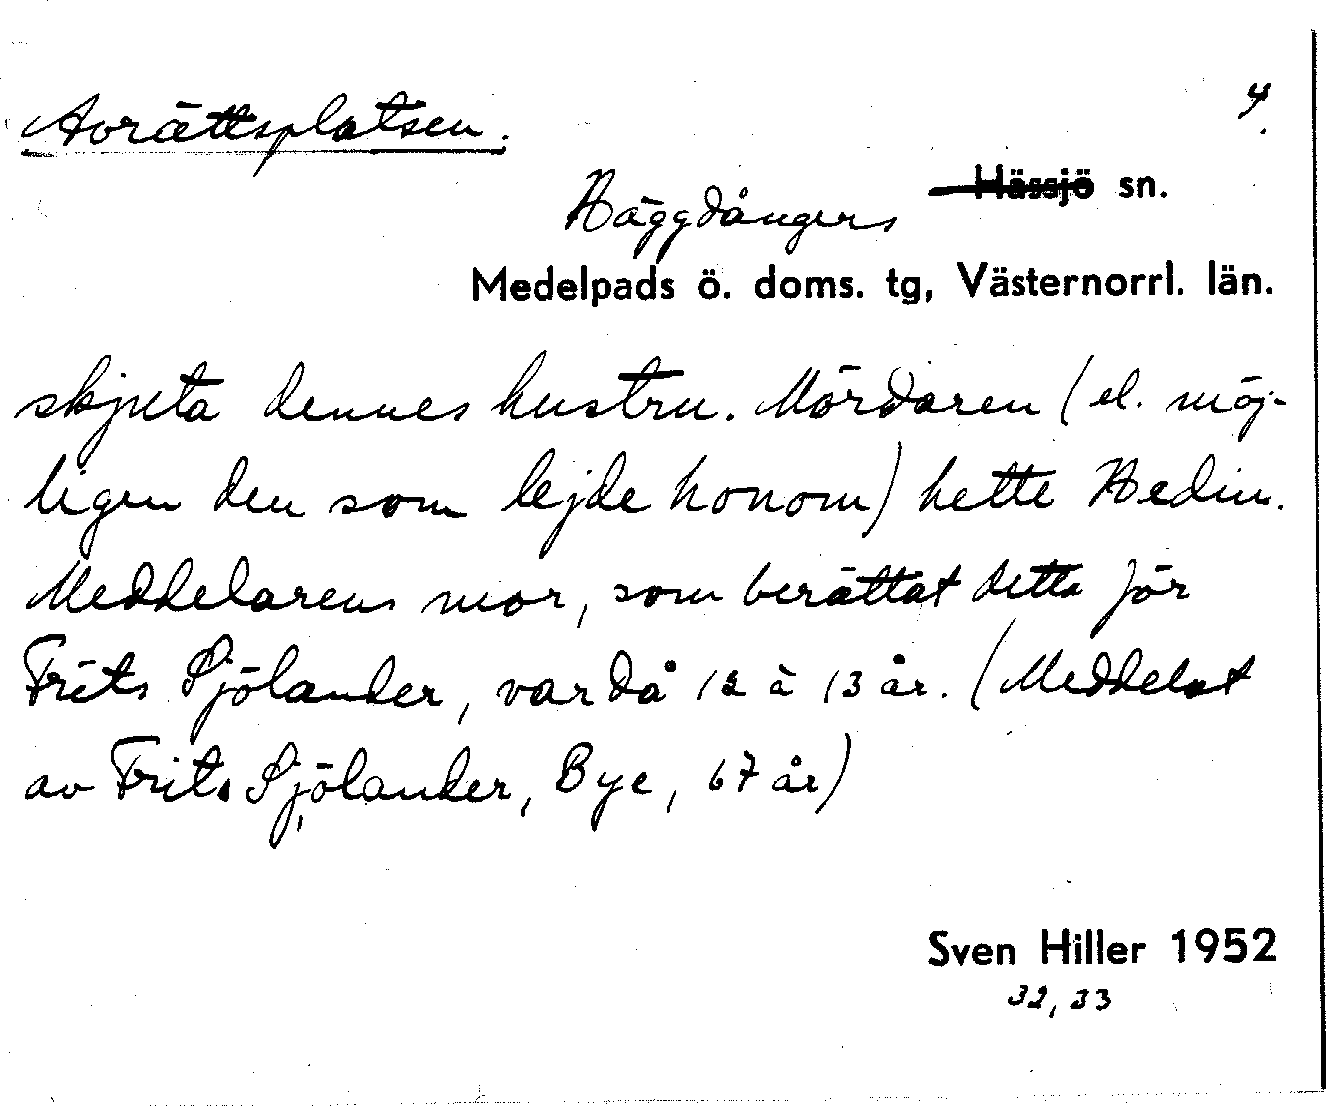 Avrättsplatsen.
4.
Häggdångers Hässjö sn.
Medelpads ö. doms. tg, Västernorrl. län.
skjuta dennes hustru. Mördaren (el. möj-
ligen den som lejde honom) hette Hedin.
Meddelarens mor, som berättat detta för
Frits Sjölander, var då 12 à 13 år. (Meddelat
av Frits Sjölander, Bye, 67 år)
Sven Hiller 1952
32, 33